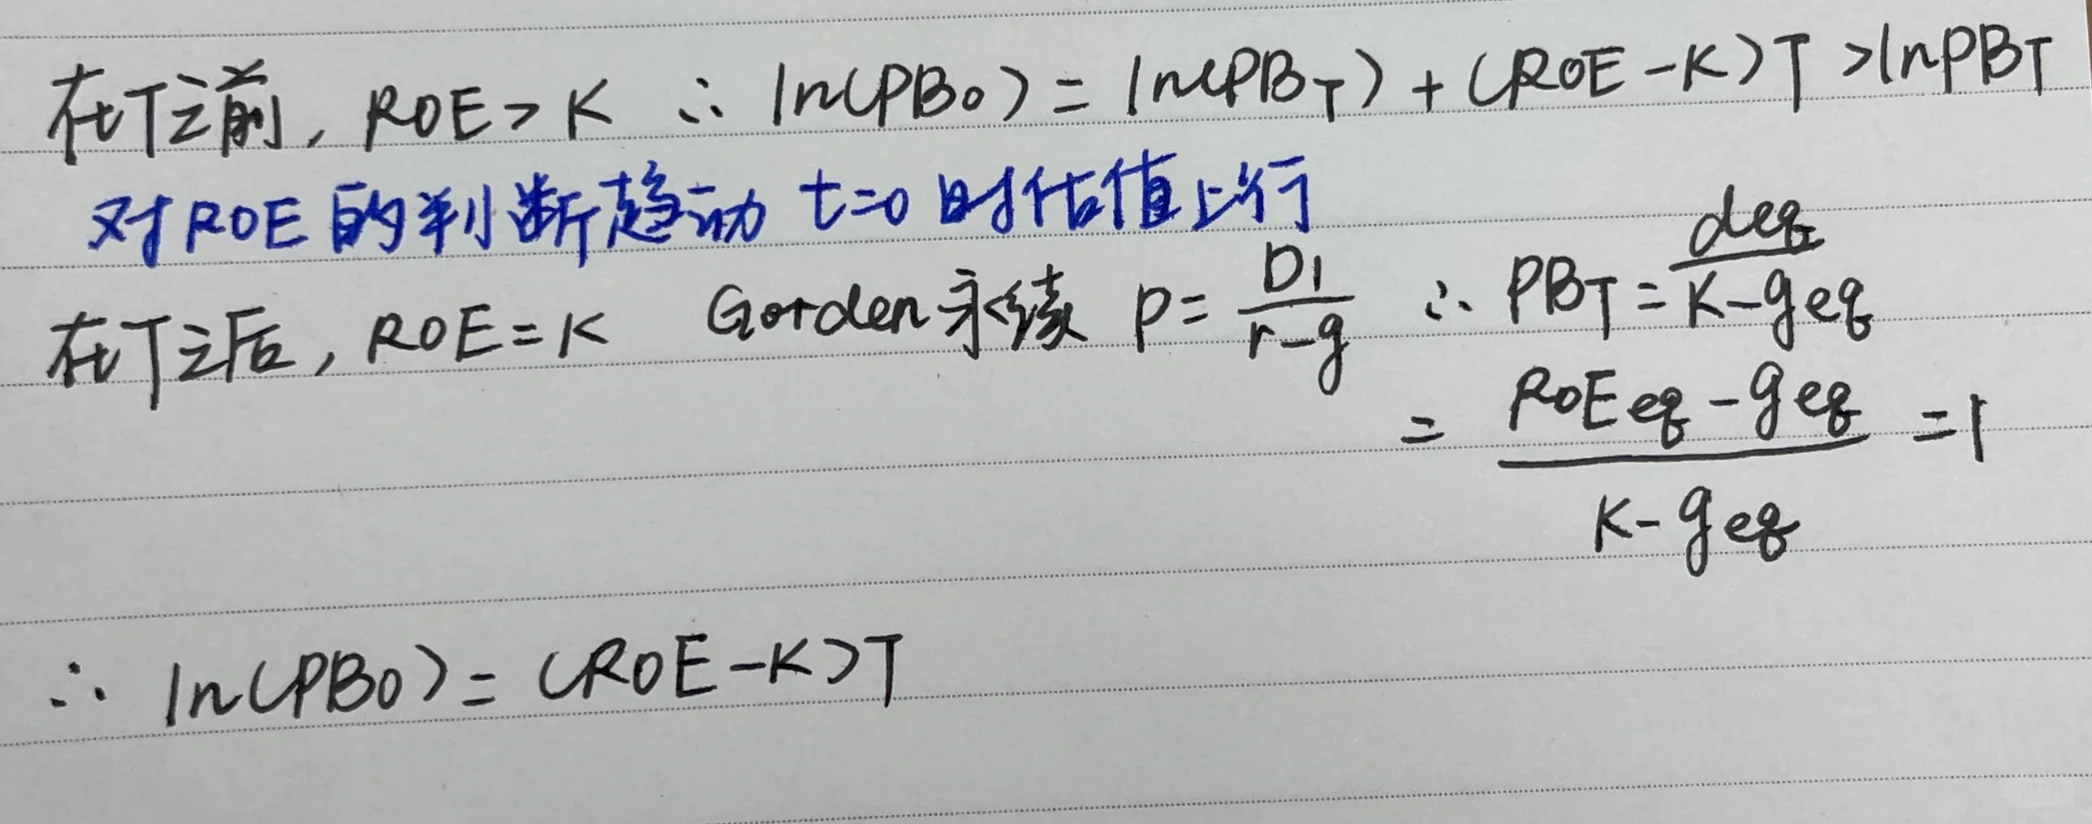 在T之前, ROE>K ∴ ln(PB₀) = ln(PB_T) + (ROE-K)T > lnPB_T
对ROE的判断趋动 t=0 时估值上行
在T之后, ROE=K Gorden永续 P = D₁/(r-g) ∴ PB_T = deq/(K-geq)
= (ROEeq-geq)/(K-geq) = 1
∴ ln(PB₀) = (ROE-K)T